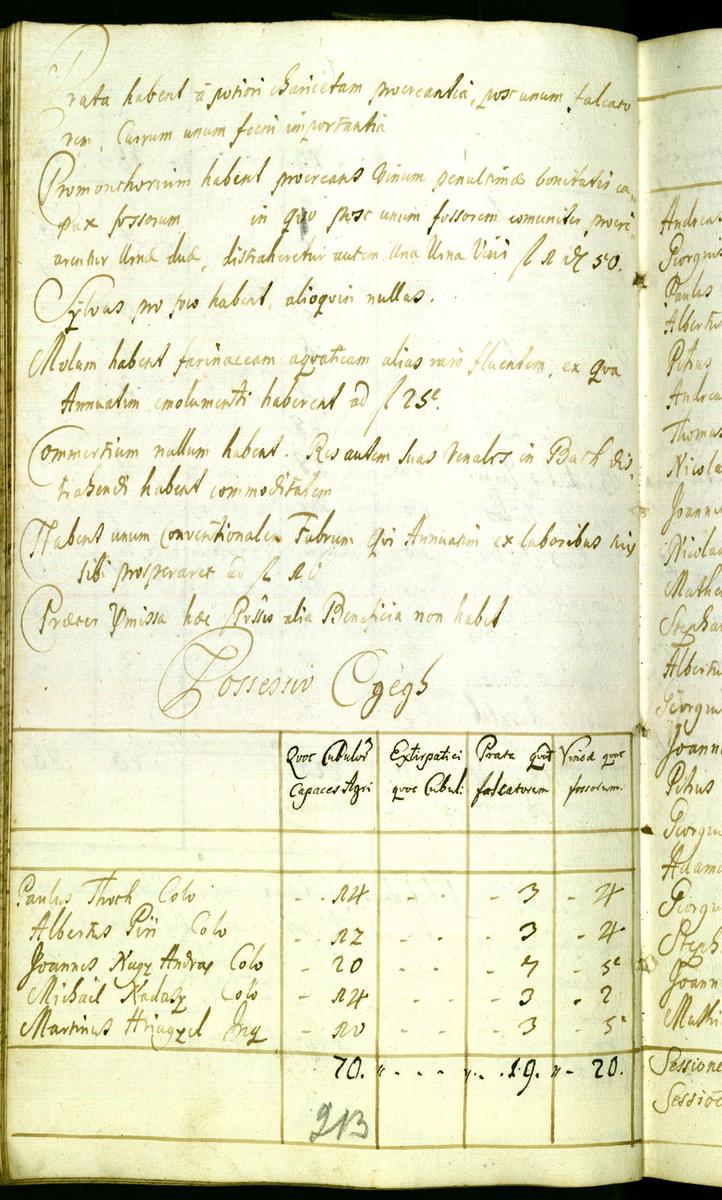 Prata habent à potiori Charicetam procreantia, post unum falcato
rem, Currum unum foeni importantia
Promonthorium habent procreans Vinum penultimae bonitatis ca-
pax fossorum in quo post unum fossorem comuniter procre-
arentur Urnae duae, distraheretur autem Una Urna Vini f 1 d 50.
Sylvas pro foco habent, alioquin nullas.
Molam habent farinaceam aquaticam alias raro fluentem, ex qva
Annuatim emolumenti haberent ad f 25.
Commertium nullum habent. Res autem suas Venales in Bath dis-
trahendi habent commoditatem
Habent unum conventionalem Fabrum qvi Annuatim ex laboribus suis
sibi prosperaret ad f
Praeter Pmissa haec Possio alia Beneficia non habet
Possessio Egegh
Qvot Cubulorum Extirpatici Prata quot Vinea quot
Capaces Agri quot Cubuli falcatorum fossorum.
Paulus Thoth Colo - - 14 - - - - 3 - 4
Albertus Piri Colo - - 12 - - - - 3 - 4
Joannes Nagy Andras Colo - 20 - - - 7 - 5
Michail Nadasy Colo - 14 - - - - 3 - 2
Martinus Inq - 10 - - - 3 - 5
70. " - - - " - - 19. " - 20.
213
Andrea
Georgius
Paulus
Albertu
Petrus
Andrea
Thomas
Nicola
Joanne
Nicolau
Mathe
Stephan
Albertu
Georgiu
Joann
Petrus
Georgiu
Adamu
Georgiu
Steph
Joann
Mathi
Sessione
Sessio